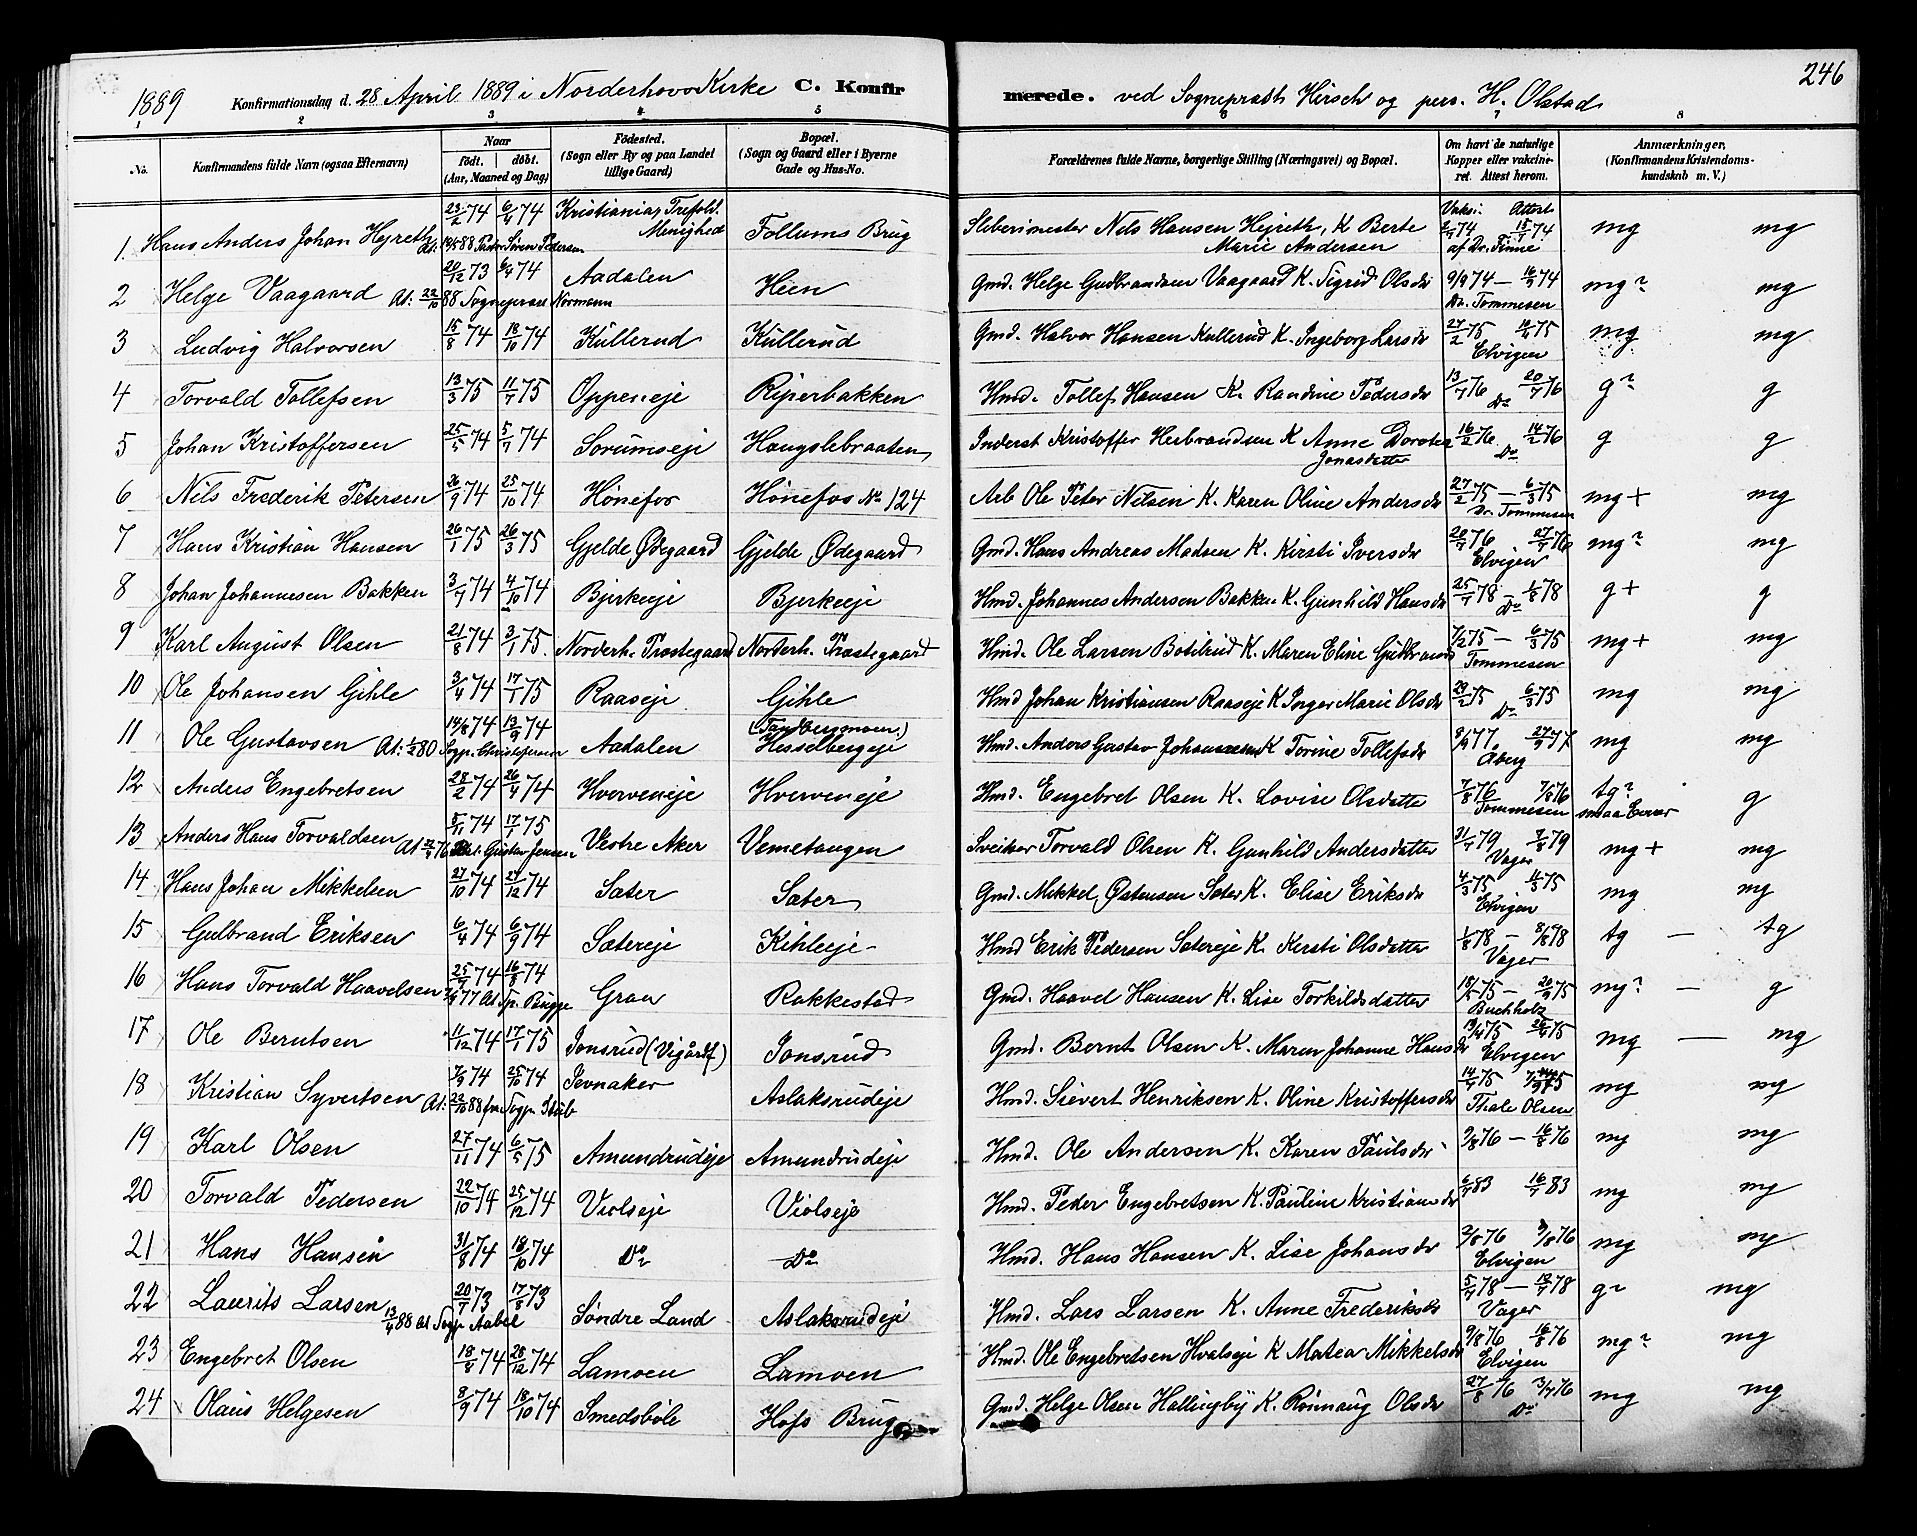 246
1889 Konfirmationsdag d. 28 April 1889 i Norderhovs Kirke C. Konfirmerede. ved Sogneprest Hirsch og pers. H. Olstad
1 2 3 4 5 6 7 8
No. Konfirmandens fulde Navn (ogsaa Efternavn) Naar födt. döbt. (Aar, Maaned og Dag) Födested. (Sogn eller By og paa Landet tillige Gaard) Bopæl. (Sogn og Gaard eller i Byerne Gade og Hus-No. Forældrenes fulde Navne, borgerlige Stilling (Næringsvei) og Bopæl. Om havt de naturlige Kopper eller vakcineret. Attest herom. Anmærkninger, (Konfirmandens Kristendomskundskab m. V.)
1. Hans Anders Johan Hejreth 23/2 74 6/4 74 Kristiania, Trefold. Menighed Follums Brug Sleberimester Nils Hansen Hejreth, K Berte Marie Andersen mg mg
2 Helge Vaagaard At: 22/10 88 Sogneprest Normann 20/12 73 6/4 74 Aadalen Hien Gmd. Helge Gudbrandsen Vaagaard K. Sigrid Olsdr 9/9 74 — 16/9 74 Dr. Tommesen mg? mg
3 Ludvig Halvorsen 15/8 74 18/10 74 Kullerud Kullerud Gmd. Halvor Hansen Kullerud K. Ingeborg Larsdr 27/2 75 Elvigen mg mg
4 Torvald Tollefsen 13/3 75 11/7 75 Oppeneje Riperbakken Hmd. Tollef Hansen K. Randine Pedersdr 13/7 76 20/7 76 Do g? g
5 Johan Kristoffersen 25/5 74 5/7 74 Sorumseje Haugslebraaten Inderst Kristoffer Herbrandsen K Anne Dorotea Jonasdatter 16/2 76 14/2 76 Do g g
6 Nils Frederik Petersen 26/9 74 25/10 74 Hönefos Hönefos No 124 Arb Ole Peter Nilsen K. Karen Oline Andersdr 27/2 75 — 6/3 75 Dr. Tommesen mg + mg
7 Hans Kristian Hansen 26/1 75 26/3 75 Gjelde Ødegaard Gjelde Ødegaard Gmd. Hans Andreas Madsen K. Kirsti Iversdr 20/7 76 27/7 76 Elvigen mg? mg
8 Johan Johannesen Bakken 3/7 74 4/10 74 Bjerkeeje Bjerkeeje Hmd. Johannes Andersen Bakken K. Gunhild Hansdr 25/7 78 — 1/8 78 Do g + g
9 Karl August Olsen 21/8 74 3/1 75. Norderh. Prostegaard Norderh. Prostegaard Hmd. Ole Larsen Botilrud K. Maren Eline Gudbrands 7/2 75 — 6/3 75 Tommesen mg + mg
10 Ole Johansen Gihle 3/4 74 17/1 75 Raaseje Gihle Hmd Johan Kristiansen Raaseje K Inger Marie Olsdr 29/2 75 6/3 75 Do mg mg
11 Ole Gustavsen At: 1/2 80 Sogp. Christophersen 14/8 74 13/9 74 Aadalen (Tandbergmoen) Hesselbergeje Hmd. Anders Gustav Johannesen K Torine Tollefsdr 8/9 77. 27/9 77 Aberg mg mg
12 Anders Engebretsen 28/2 74 26/4 74 Hverveneje Hverveneje Hmd. Engebret Olsen K. Lovise Olsdatter 7/8 76 7/8 76 Tommesen tg? smaa Evner g
13 Anders Hans Torvaldsen 5/11 74 17/1 75 Vestre Aker Vemetangen Sveitser Torvald Olsen K. Gunhild Andersdatter 31/7 79 7/8 79 Vager mg + mg
14 Hans Johan Mikkelsen 27/10 74 27/12 74 Sæter Sæter Gmd. Mikkel Østensen Sæter K. Elise Eriksdr 4/3 75 11/3 75 Elvigen mg mg
15 Gulbrand Eriksen 6/4 74 6/9 74 Sætereje Kihleeje Hmd Erik Pedersen Sætereje K. Kersti Olsdatter 1/8 78 — 8/8 78 Vager tg — tg
16 Hans Torvald Haavelsen 25/7 74 16/8 74 Gran Rakkestad Gmd. Haavel Hansen K. Lise Torkildsdatter 75 — 20/9 75 Buchholz mg? — g
17 Ole Berntsen 11/12 74 17/1 75 Jonsrud (Vigårdf) Jonsrud Gmd. Bernt Olsen K. Maren Johanne Hansdr 75 75 Elvigen mg — mg
18 Kristian Syvertsen At: 22/10 88 fra Sogp. Stub 7/9 74 25/10 74 Jevnaker Aslaksrudeje Hmd. Sievert Henriksen K. Oline Kristoffersdr 14/7 75 75 Thale Olsen mg mg
19 Karl Olsen 27/11 74 6/5 75 Amundrudeje Amundrudeje Hmd. Ole Andersen K. Karen Paulsdr 9/8 76 — 16/8 76 mg mg
20 Torvald Pedersen 22/10 74 25/12 74 Violseje Violseje Hmd. Peder Engebretsen K. Pauline Kristiansdr 6/7 83 16/7 83 mg mg
21 Hans Hansen 31/8 74 18/10 74 Do Do Hmd. Hans Hansen K. Lise Johansdr 2/8 76 3/8 76 Elvigen mg mg
22 Laurits Larsen 13/4 88 At Sogp Aabel 20/7 73 17/8 73 Søndre Land Aslaksrudeje Hmd. Lars Larsen K. Anne Frederiksdr 5/7 78 — 12/7 78 Vager g? mg
23 Engebret Olsen 18/8 74 28/12 74 Lamoen Lamoen Hmd. Ole Engebretsen Hvalseje K Matea Mikkelsdr 9/8 76 16/8 76 Elvigen mg? mg
24 Olaus Helgesen 8/9 74 18/10 74 Smedsböle Hofs Brug Gmd. Helge Olsen Hallingby K. Rönnaug Olsdr 27/8 76 3/7 76 Do mg mg